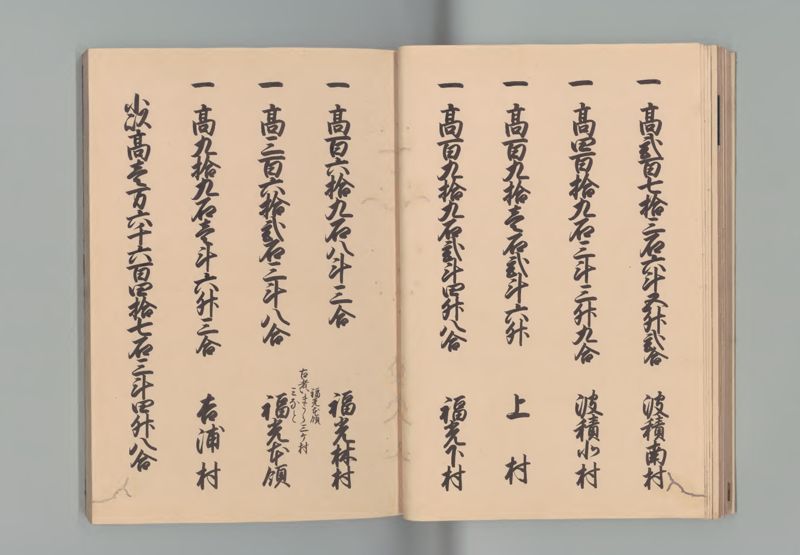 一 髙弐百七拾三石六斗五升弐合 波積南村
一 髙四百拾九石三斗三升九合 波積北村
一 髙百九拾壱石弐斗六升 上村
一 髙百九拾九石弐斗四升八合 福光下村
一 髙百六拾九石八斗三合 福光林村
福光本領
三ケ村
一 髙三百六拾弐石三斗八合 福光本領
一 髙九拾九石壱斗六升三合 吉浦村
小以髙壱万六千六百四拾七石三斗四升八合